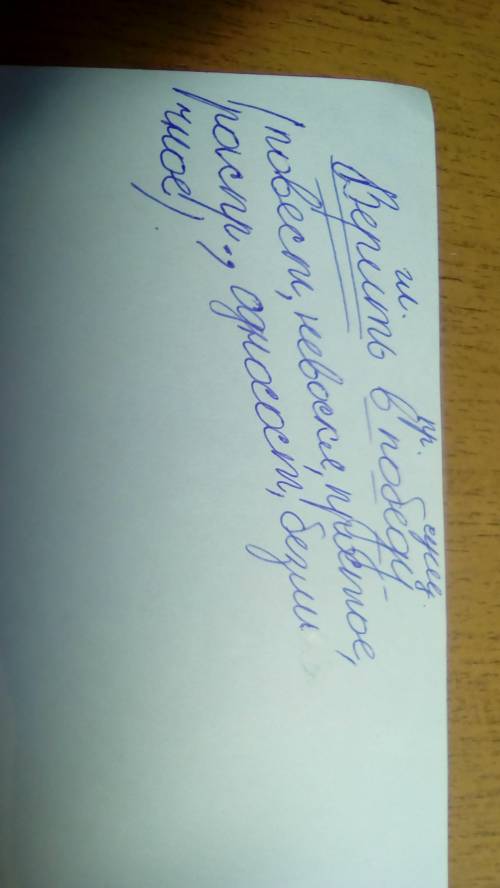 гл. пр. сущ.
Верить в победу
(повеств, невоскл, простое,
распр., односост, безли
чное)